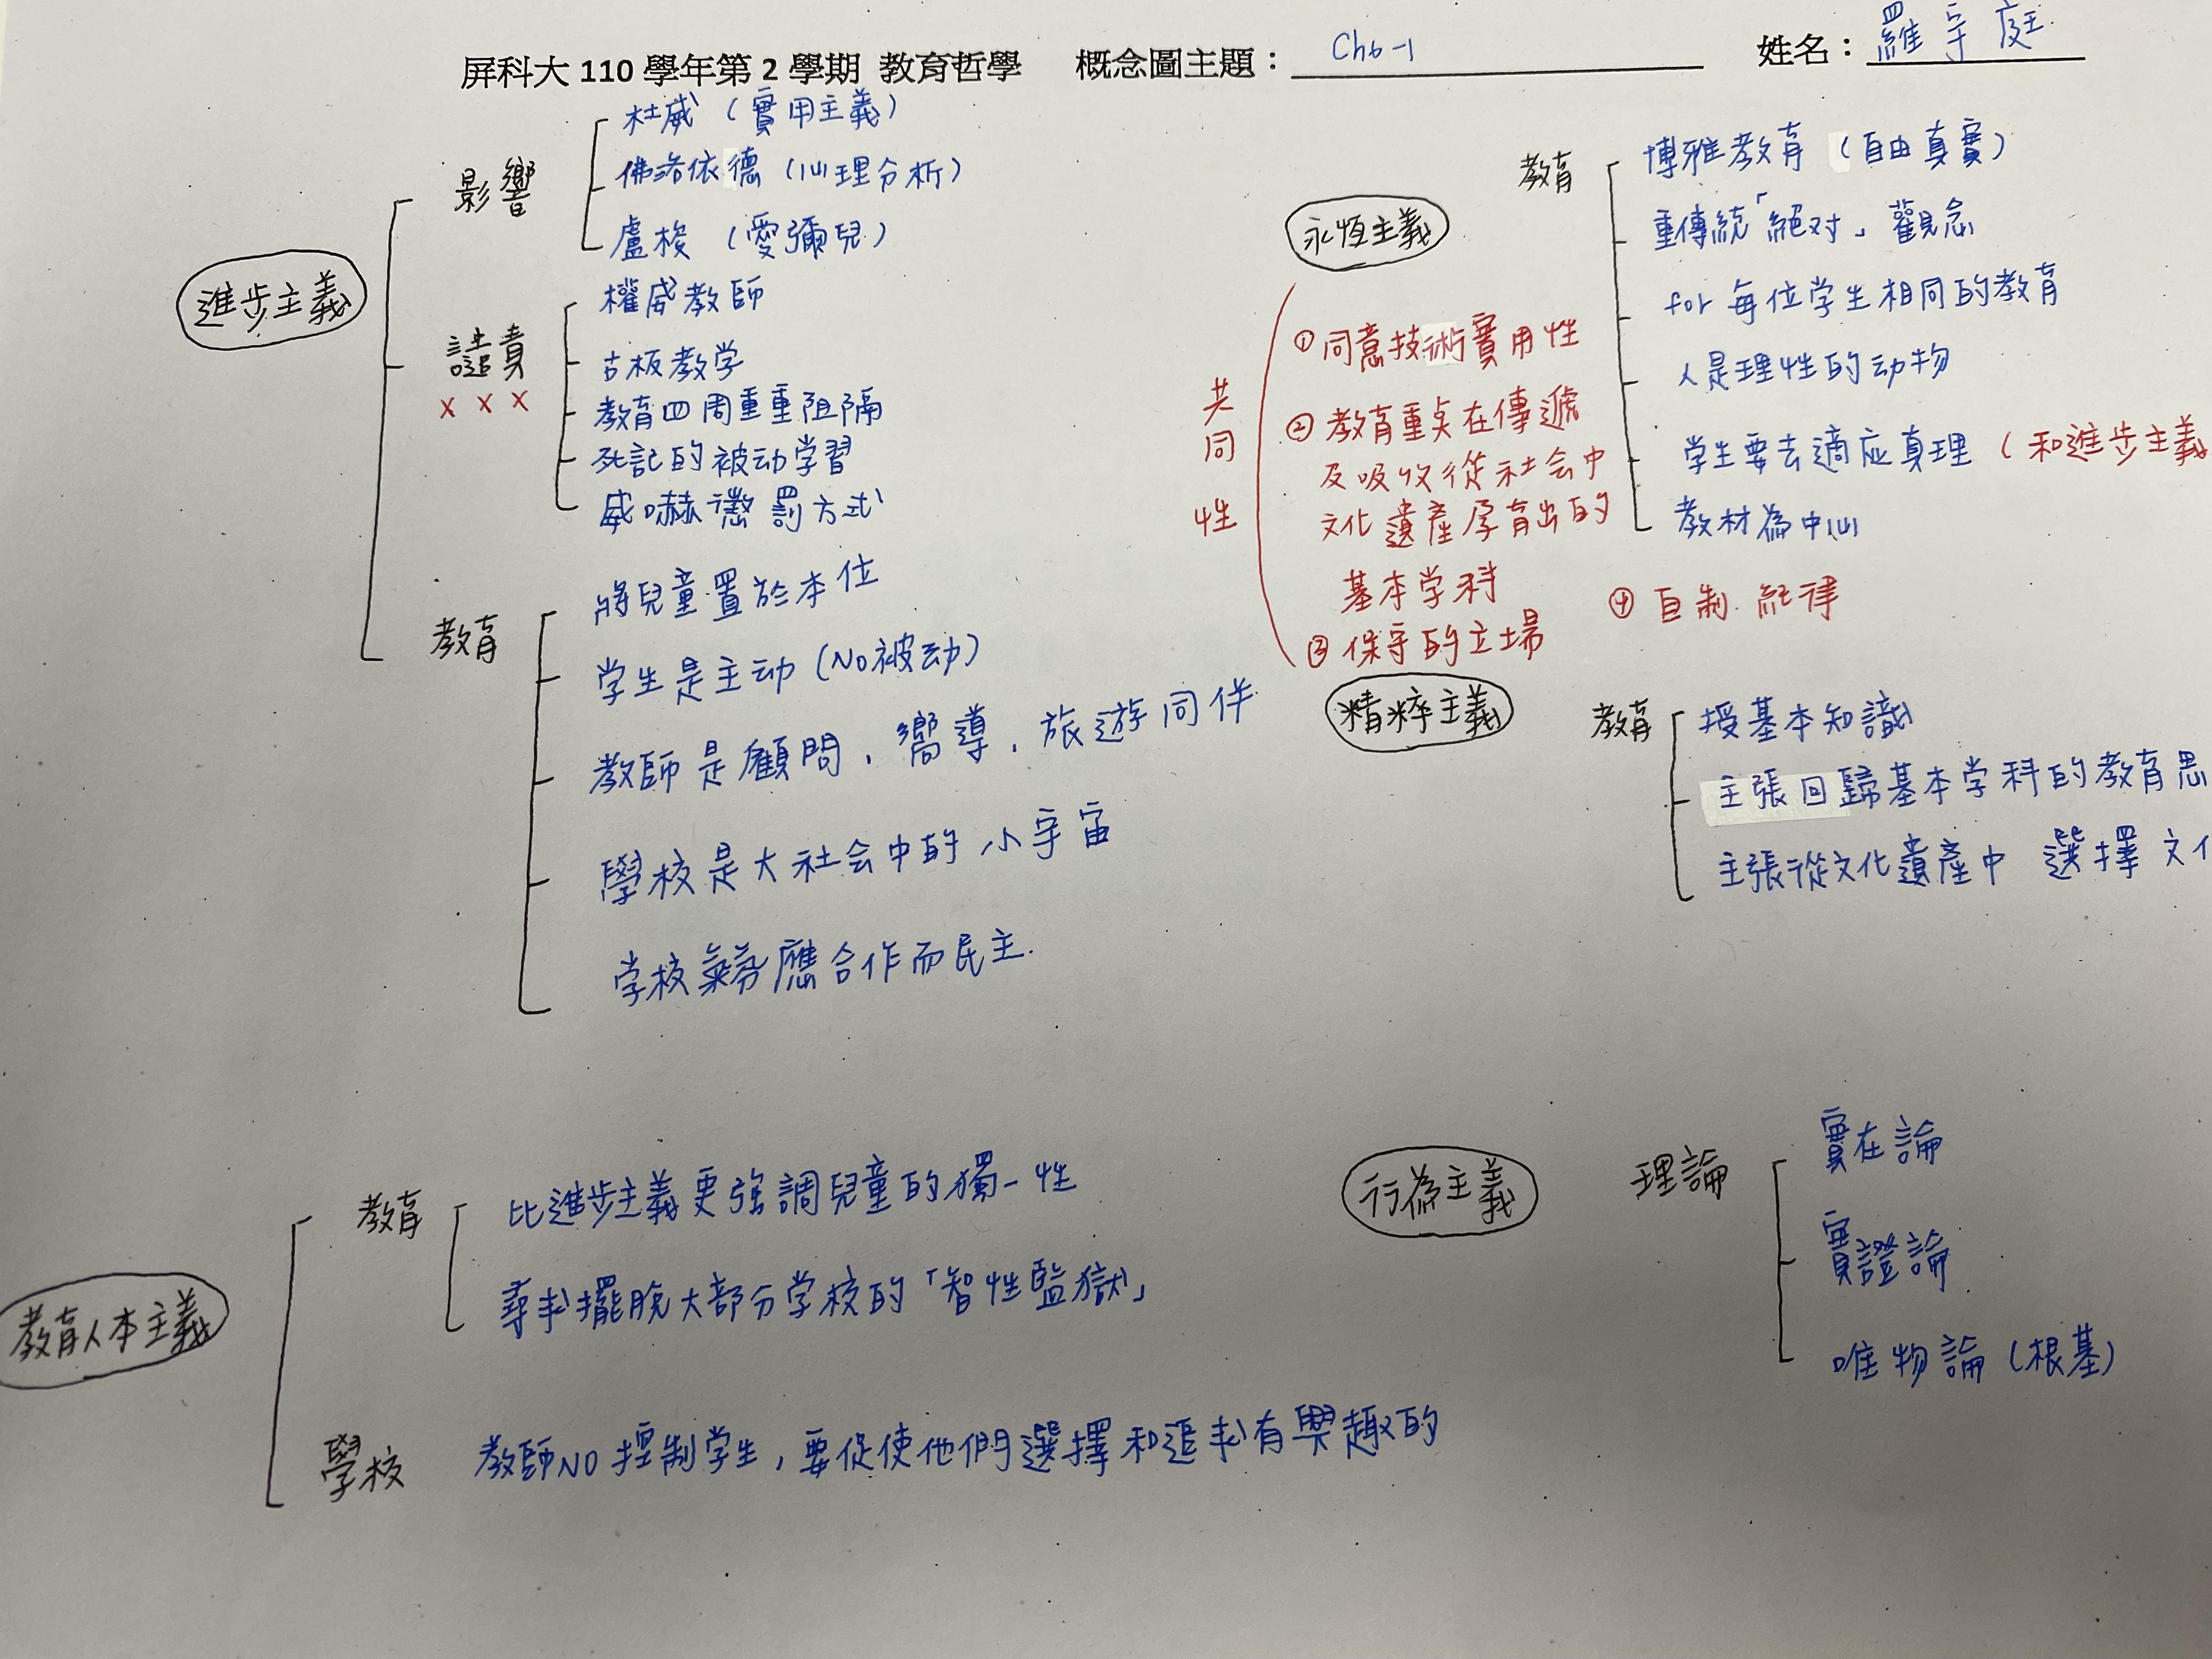 屏科大 110 學年第 2 學期 教育哲學 概念圖主題：Ch6-1 姓名：羅宇庭
進步主義
影響
杜威（實用主義）
佛洛依德（心理分析）
盧梭（愛彌兒）
譴責
x x x
權威教師
古板教学
教育四周重重阻隔
死記的被动学習
威嚇懲罰方式
教育
將兒童置於本位
学生是主动（No被动）
教師是顧問，嚮導，旅遊同伴
學校是大社会中的小宇宙
学校氣氛應合作而民主.
永恆主義
教育
博雅教育（自由真實）
重傳統「絕对」觀念
for 每位学生相同的教育
人是理性的动物
学生要去適应真理（和進步主義
教材為中心
共同性
① 同意技術實用性
② 教育重点在傳遞
及吸收從社会中
文化遺產孕育出的
基本学科
③ 保守的立場
④ 自制.紀律
精粹主義
教育
授基本知識
主張回歸基本学科的教育思
主張從文化遺產中 選擇文
教育人本主義
教育
比進步主義更強調兒童的獨一性
尋求擺脫大部分学校的「智性監獄」
學校
教師NO控制学生，要促使他們選擇和追求有興趣的
行為主義
理論
實在論
實證論
唯物論（根基）